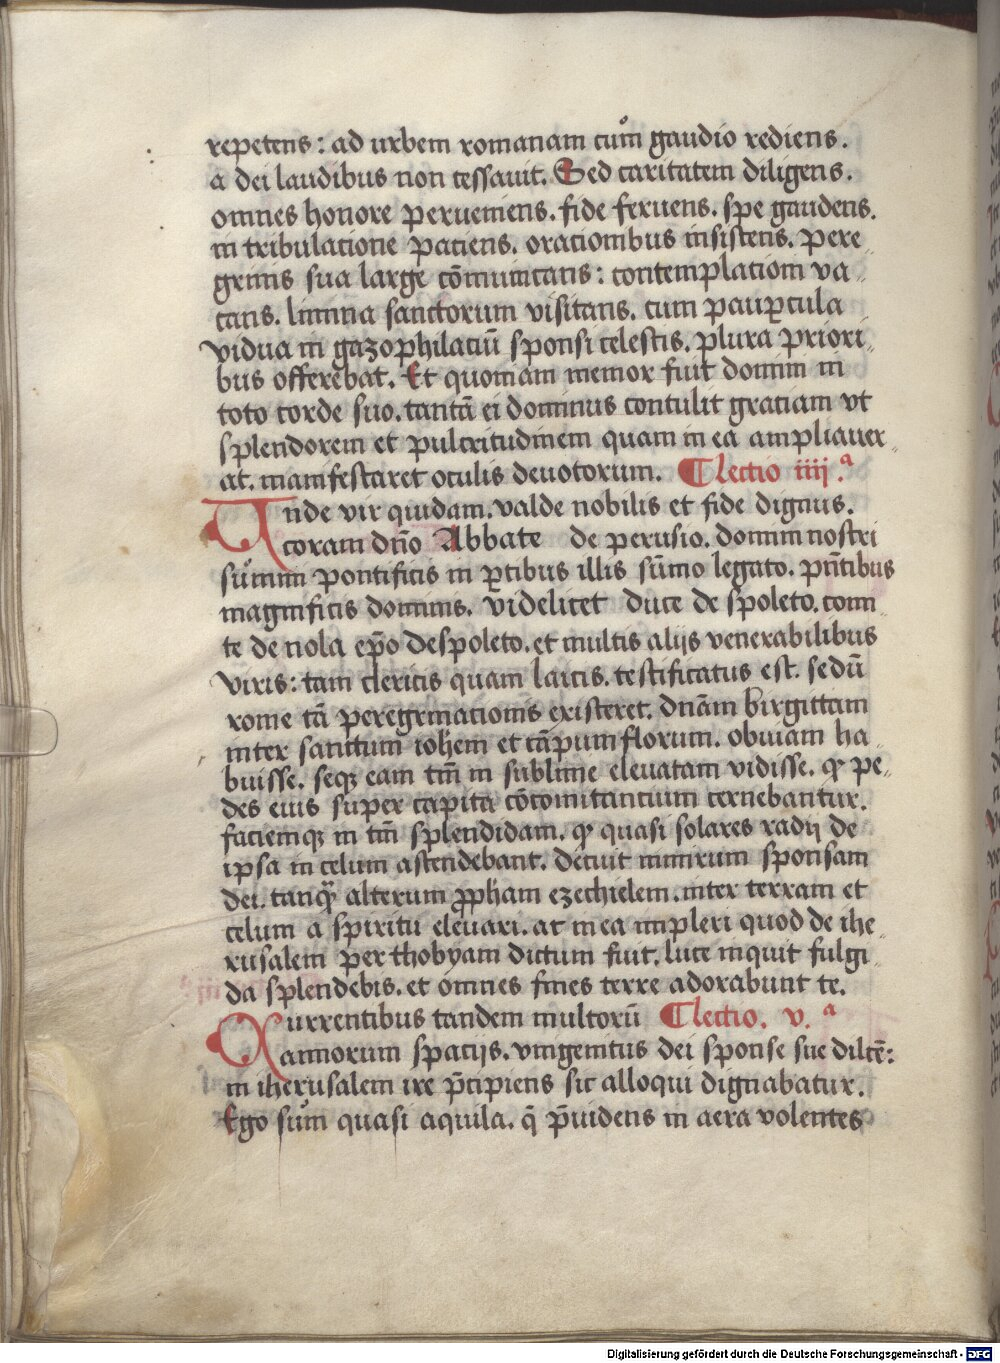 repetens: ad urbem romanam cum gaudio rediens.
a dei laudibus non cessauit. Sed caritatem diligens.
omnes honore perueniens. fide feruens. spe gaudens.
in tribulacione paciens. oracionibus insistens. pere
grinis sua large cōmunicans: contemplacioni va
cans. limina sanctorum visitans. cum paupcula
vidua in gazophilaciū sponsi celestis. plura priori
bus offerebat. Et quoniam memor fuit domini in
toto corde suo. tantā ei dominus contulit graciam vt
splendorem et pulcritudinem quam in ea ampliauer
at. manifestaret oculis deuotorum. Lectio iiii.a
Unde vir quidam. valde nobilis et fide dignus.
coram dn̄o Abbate de perusio. domini nostri
summi pontificis in ptibus illis sūmo legato. pn̄tibus
magnificis dominis. videlicet duce de spoleto. comi
te de nola ep̄o de spoleto. et multis alijs venerabilibus
viris: tam clericis quam laicis. testificatus est. se dū
rome cā peregrinacionis existeret. dn̄am birgittam
inter sanctum ioh̄em et cāpum florum. obuiam ha
buisse. seqꝫ eam tm̄ in sublime eleuatam vidisse. ꝙ pe
des eius super capita cōcomitancium cernebantur.
faciemqꝫ in tm̄ splendidam. ꝙ quasi solares radij de
ipsa in celum ascendebant. decuit nimirum sponsam
dei. tanqꝫ alterum ꝓpham ezechielem. inter terram et
celum a spiritu eleuari. ac in ea impleri quod de ihe
rusalem per thobyam dictum fuit. luce inquit fulgi
da splendebis. et omnes fines terre adorabunt te.
Currentibus tandem multorū Lectio. v.a
annorum spacijs. vnigenitus dei sponse sue dilcē:
in iherusalem ire p̄cipiens sic alloqui dignabatur.
Ego sum quasi aquila. q̄ p̄uidens in aera volentes
Digitalisierung gefördert durch die Deutsche Forschungsgemeinschaft - DFG